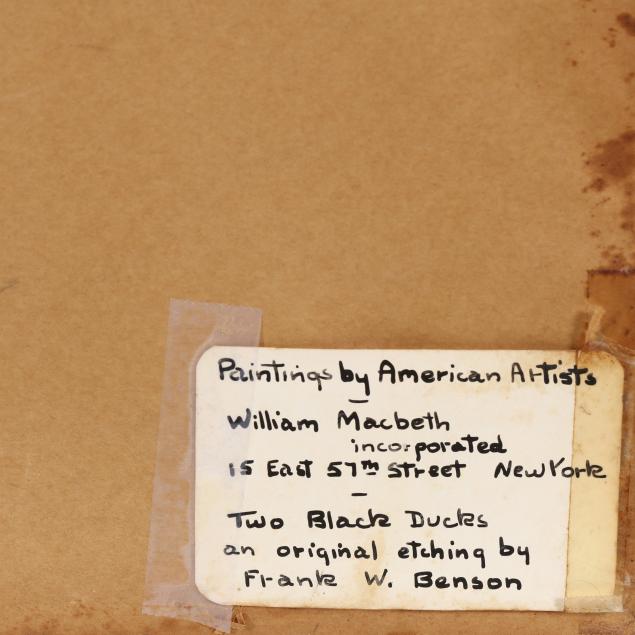 Paintings by American Artists
William Macbeth
incorporated
15 East 57th Street New York
Two Black Ducks
an original etching by
Frank W. Benson